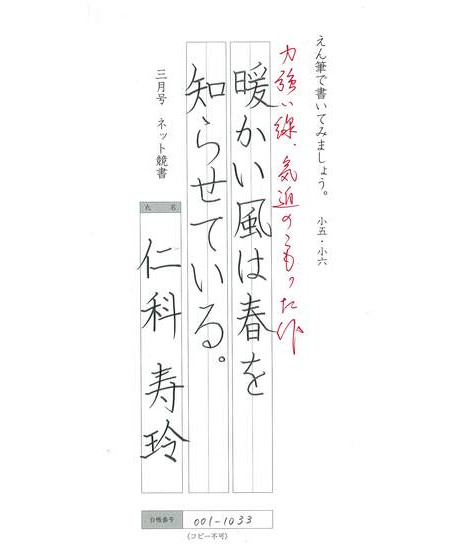 えん筆で書いてみましょう。 小五・小六
力強い線、気迫のこもった作
暖かい風は春を
知らせている。
三月号 ネット競書
氏名
仁科 寿玲
台帳番号 001-1033
(コピー不可)